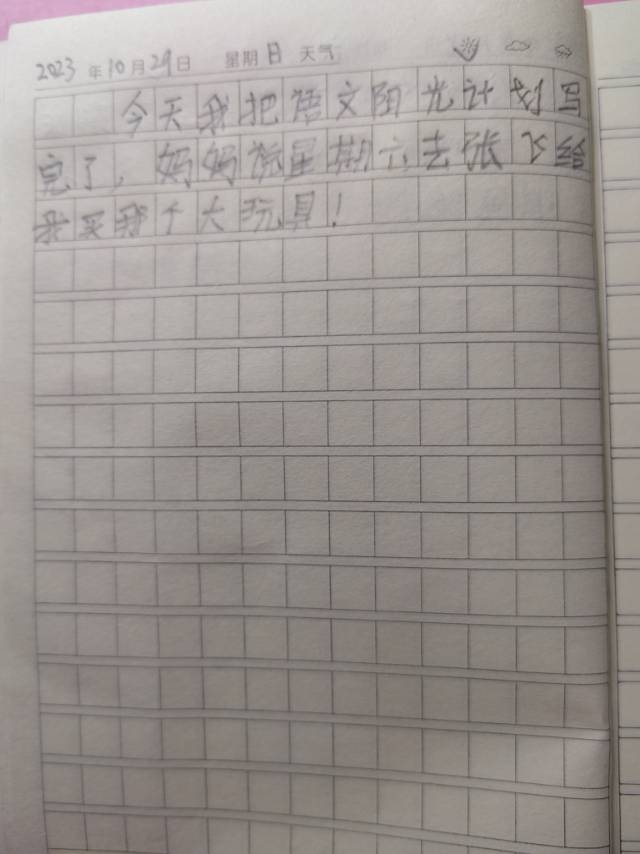 2023年10月29日 星期日 天气
今天我把语文阳光计划写
完了，妈妈说星期六去张飞给
我买那个大玩具！